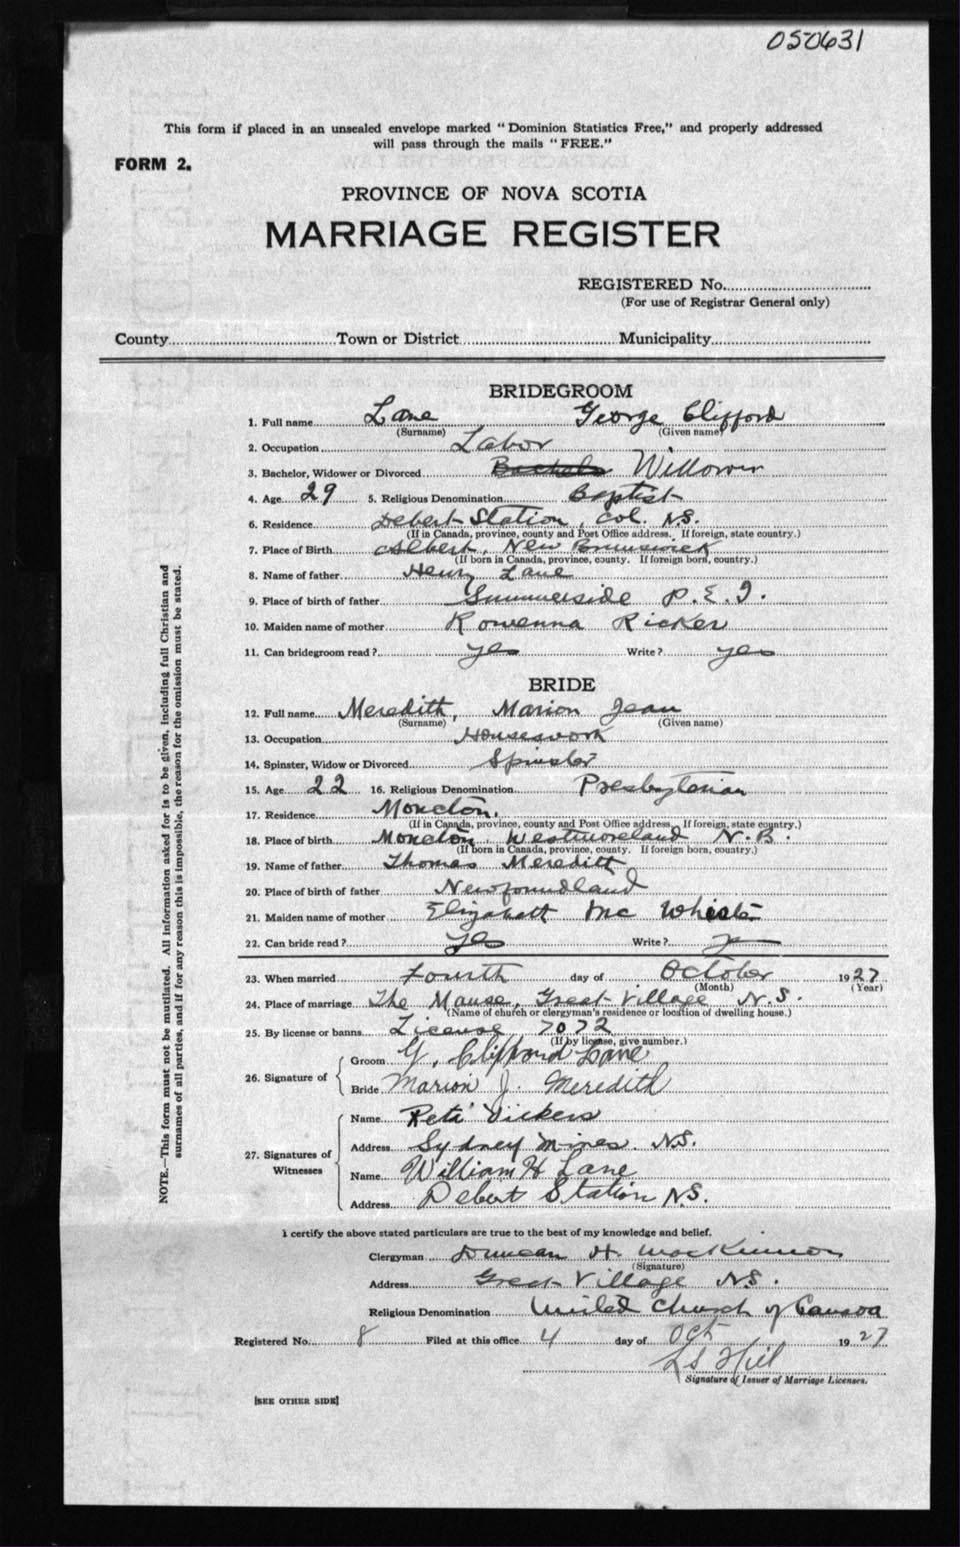 050631
This form if placed in an unsealed envelope marked "Dominion Statistics Free," and properly addressed
will pass through the mails "FREE."
FORM 2.
PROVINCE OF NOVA SCOTIA
MARRIAGE REGISTER
REGISTERED No.
(For use of Registrar General only)
County Town or District Municipality
BRIDEGROOM
1. Full name Lane George Clifford
(Surname) (Given name)
2. Occupation Labor
3. Bachelor, Widower or Divorced Widower
4. Age 29 5. Religious Denomination Baptist
6. Residence Debert Station, Col. N.S.
(If in Canada, province, county and Post Office address. If foreign, state country.)
7. Place of Birth Albert, New Brunswick
(If born in Canada, province, county. If foreign born, country.)
8. Name of father Henry Lane
9. Place of birth of father Summerside P.E.I.
10. Maiden name of mother Rowenna Ricker
11. Can bridegroom read? yes Write? yes
BRIDE
12. Full name Meredith, Marion Jean
(Surname) (Given name)
13. Occupation Housework
14. Spinster, Widow or Divorced Spinster
15. Age 22 16. Religious Denomination Presbyterian
17. Residence Moncton.
(If in Canada, province, county and Post Office address. If foreign, state country.)
18. Place of birth Moncton, Westmoreland N.B.
(If born in Canada, province, county. If foreign born, country.)
19. Name of father Thomas Meredith
20. Place of birth of father Newfoundland
21. Maiden name of mother Elizabeth Mc
22. Can bride read? yes Write?
23. When married Fourth day of October 1927
(Month) (Year)
24. Place of marriage The Manse, Great Village N.S.
(Name of church or clergyman's residence or location of dwelling house.)
25. By license or banns License 7072
(If by license, give number.)
26. Signature of
Groom G. Clifford Lane
Bride Marion J. Meredith
27. Signatures of
Witnesses
Name Reta Vickers
Address Sydney Mines. N.S.
Name William H Lane
Address Debert Station N.S.
I certify the above stated particulars are true to the best of my knowledge and belief.
Clergyman Duncan H. MacKinnon
(Signature)
Address Great Village N.S.
Religious Denomination United Church of Canada
Registered No. 8 Filed at this office 4 day of Oct 1927
LS Hill
Signature of Issuer of Marriage Licenses.
[SEE OTHER SIDE]
NOTE.—This form must not be mutilated. All information asked for is to be given, including full Christian and
surnames of all parties, and if for any reason this is impossible, the reason for the omission must be stated.